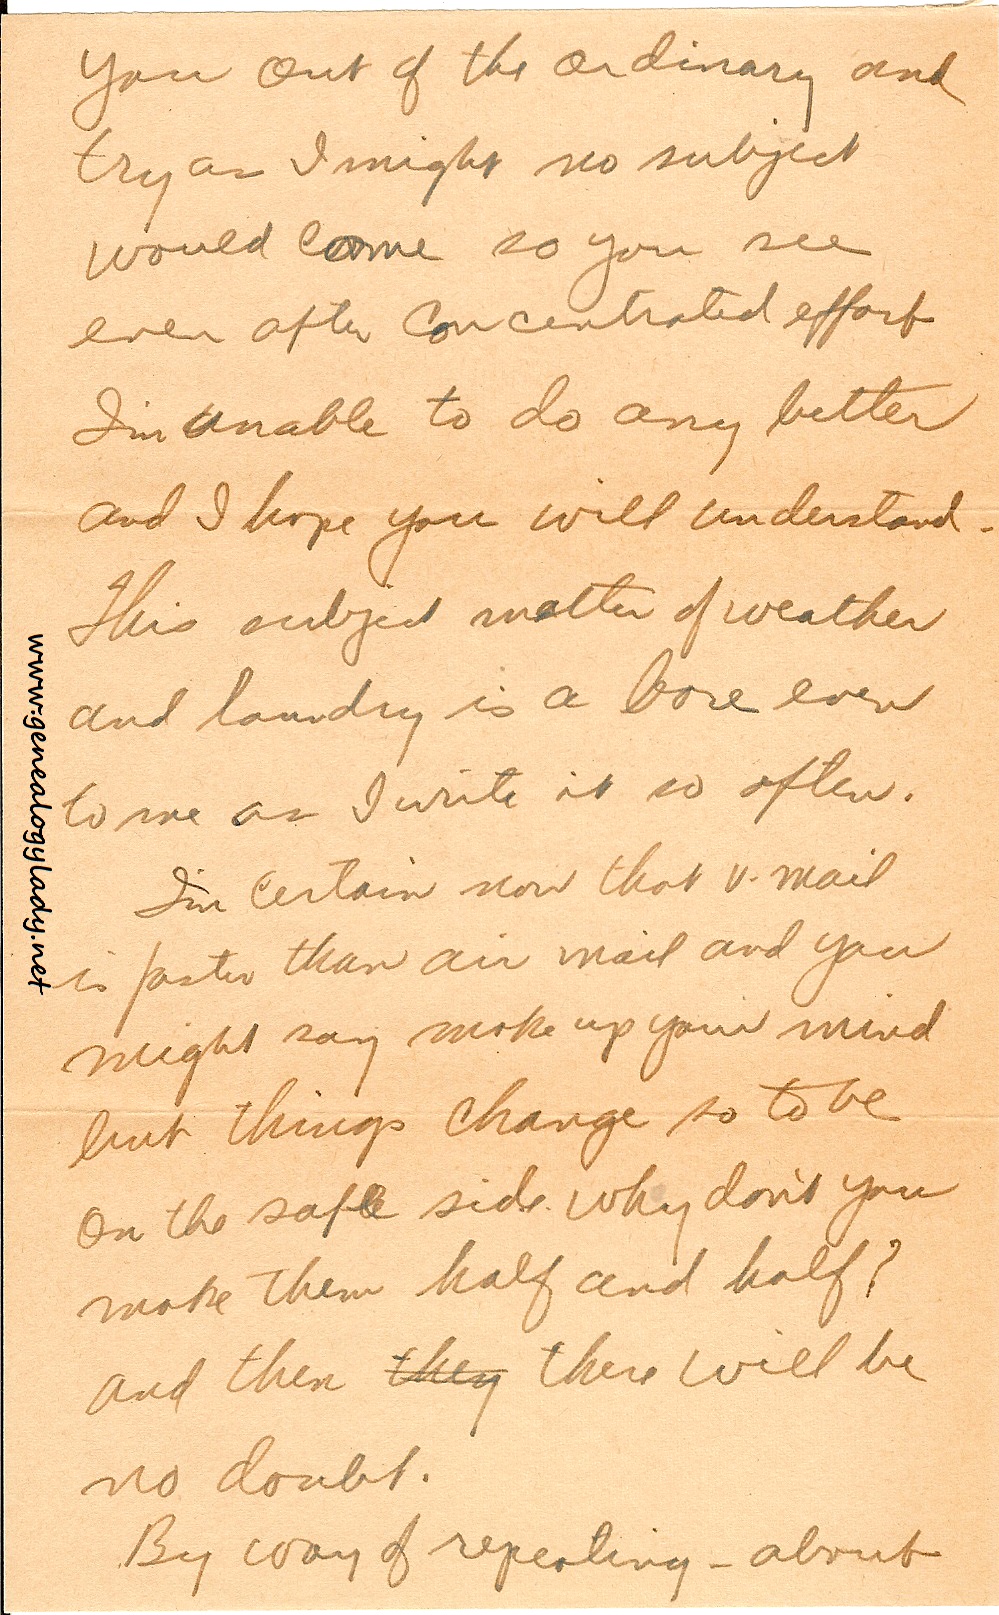 you out of the ordinary and
try as I might no subject
would come so you see
even after concentrated effort
I'm unable to do any better
and I hope you will understand.
This subject matter of weather
and laundry is a bore even
to me as I write it so often.
I'm certain now that v-mail
is faster than air mail and you
might say make up your mind
but things change so to be
on the safe side. why don't you
make them half and half?
and then they there will be
no doubt.
By way of repeating - about
www.genealogylady.net